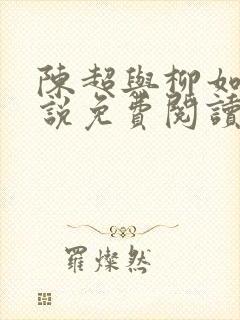 陳超與柳如
說免費閱讀
羅燦然